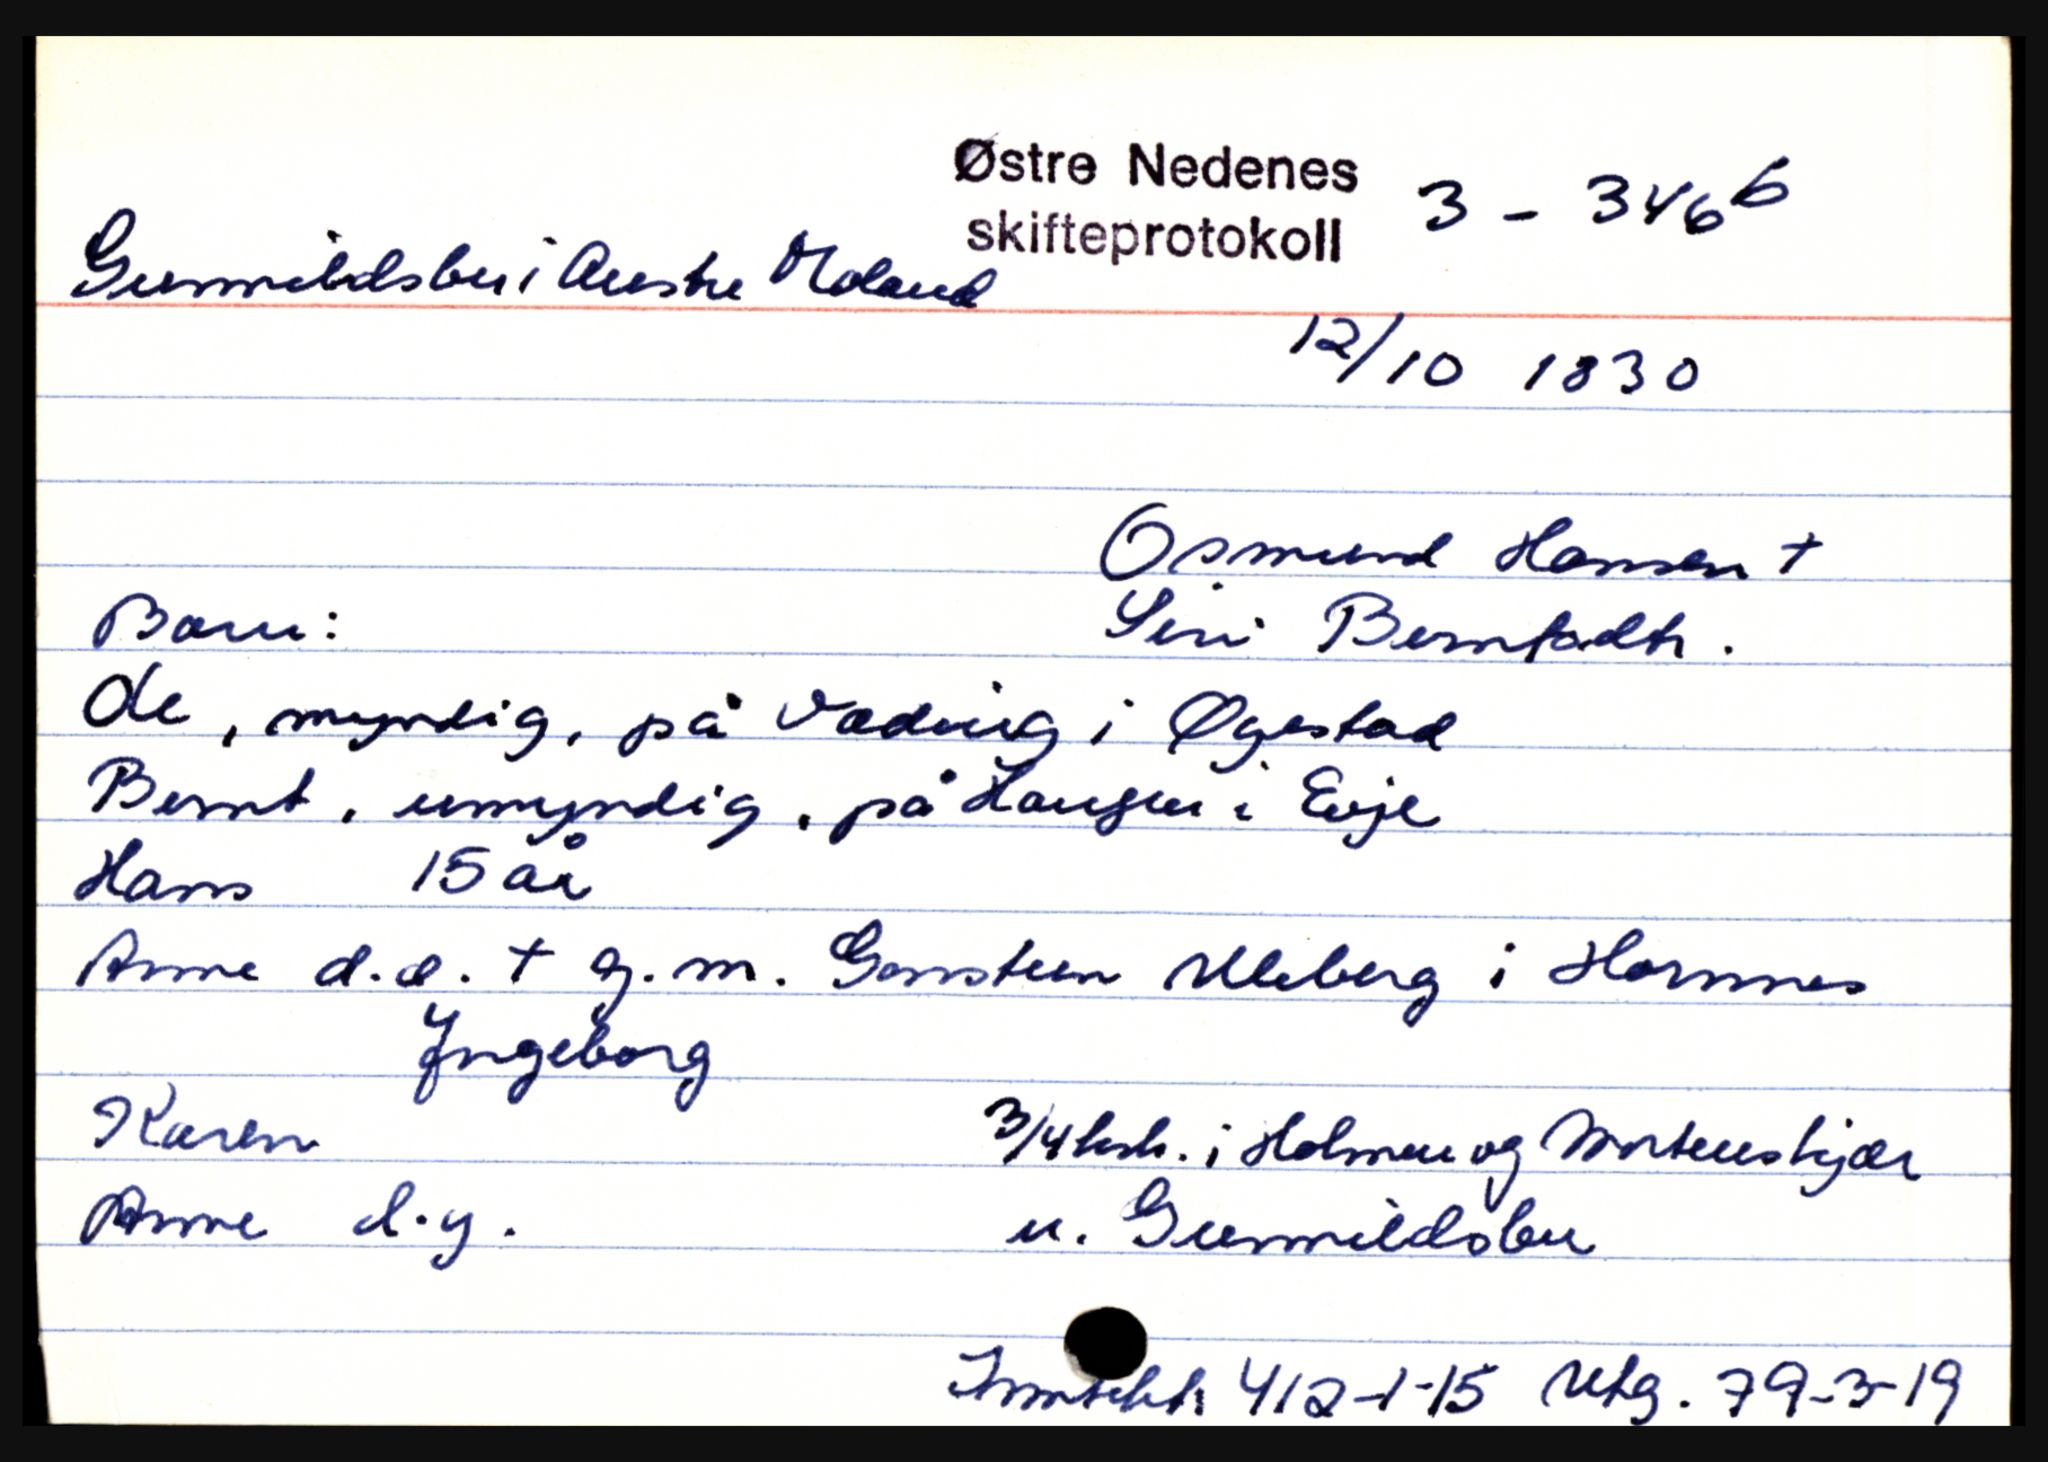 Østre Nedenes
skifteprotokoll 3 - 346 b
Gunnildsbu i Austre Moland
12/10 1830
Osmund Hansen +
Siri Berntsdtr.
Barn:
Ole, myndig, på Vædvig i Øyestad
Bernt, umyndig, på Haugen i Evje
Hans 15 år
Anne d.e. + g.m. Gonsteen Uleberg i Hornnes
Ingeborg
Karen 3/4 hsh. i Holmen og Mortenskjær
Anne d.y. u. Gunnildsbu
Inntekt 412-1-15 Utg. 79-3-19